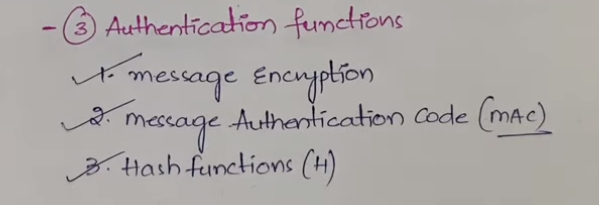 - ③ Authentication functions
1. message Encryption
2. message Authentication Code (MAC)
3. Hash functions (H)